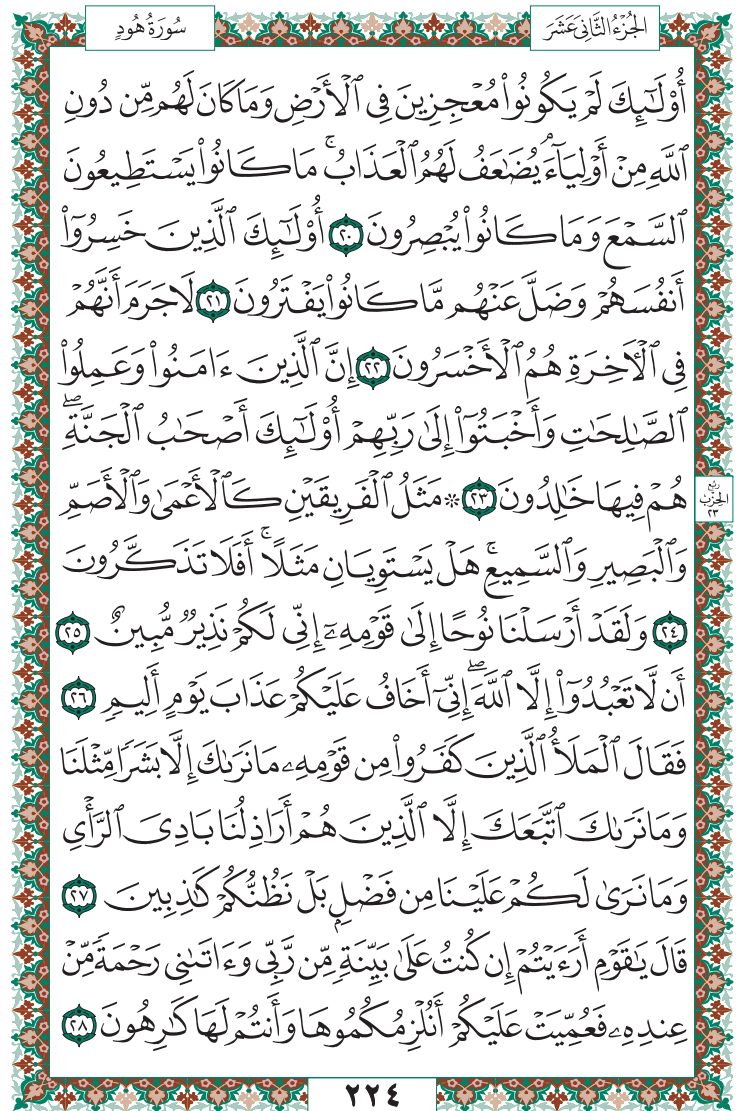 الجُزْءُ الثَّانِي عَشَرَ
سُورَةُ هُودٍ
أُوْلَـٰٓئِكَ لَمْ يَكُونُواْ مُعْجِزِينَ فِى ٱلْأَرْضِ وَمَا كَانَ لَهُم مِّن دُونِ
ٱللَّهِ مِنْ أَوْلِيَآءَۘ يُضَـٰعَفُ لَهُمُ ٱلْعَذَابُۚ مَا كَانُواْ يَسْتَطِيعُونَ
ٱلسَّمْعَ وَمَا كَانُواْ يُبْصِرُونَ ٢٠ أُوْلَـٰٓئِكَ ٱلَّذِينَ خَسِرُوٓاْ
أَنفُسَهُمْ وَضَلَّ عَنْهُم مَّا كَانُواْ يَفْتَرُونَ ٢١ لَا جَرَمَ أَنَّهُمْ
فِى ٱلْأَخِرَةِ هُمُ ٱلْأَخْسَرُونَ ٢٢ إِنَّ ٱلَّذِينَ ءَامَنُواْ وَعَمِلُواْ
ٱلصَّـٰلِحَـٰتِ وَأَخْبَتُوٓاْ إِلَىٰ رَبِّهِمْ أُوْلَـٰٓئِكَ أَصْحَـٰبُ ٱلْجَنَّةِۖ
هُمْ فِيهَا خَـٰلِدُونَ ٢٣ ۞ مَثَلُ ٱلْفَرِيقَيْنِ كَٱلْأَعْمَىٰ وَٱلْأَصَمِّ
رُبْع
الحِزْب
٢٣
وَٱلْبَصِيرِ وَٱلسَّمِيعِۚ هَلْ يَسْتَوِيَانِ مَثَلًاۚ أَفَلَا تَذَكَّرُونَ
٢٤ وَلَقَدْ أَرْسَلْنَا نُوحًا إِلَىٰ قَوْمِهِۦٓ إِنِّى لَكُمْ نَذِيرٌ مُّبِينٌ ٢٥
أَن لَّا تَعْبُدُوٓاْ إِلَّا ٱللَّهَۖ إِنِّىٓ أَخَافُ عَلَيْكُمْ عَذَابَ يَوْمٍ أَلِيمٍ ٢٦
فَقَالَ ٱلْمَلَأُ ٱلَّذِينَ كَفَرُواْ مِن قَوْمِهِۦ مَا نَرَىٰكَ إِلَّا بَشَرًا مِّثْلَنَا
وَمَا نَرَىٰكَ ٱتَّبَعَكَ إِلَّا ٱلَّذِينَ هُمْ أَرَاذِلُنَا بَادِىَ ٱلرَّأْىِ
وَمَا نَرَىٰ لَكُمْ عَلَيْنَا مِن فَضْلٍۭ بَلْ نَظُنُّكُمْ كَـٰذِبِينَ ٢٧
قَالَ يَـٰقَوْمِ أَرَءَيْتُمْ إِن كُنتُ عَلَىٰ بَيِّنَةٍ مِّن رَّبِّى وَءَاتَىٰنِى رَحْمَةً مِّنْ
عِندِهِۦ فَعُمِّيَتْ عَلَيْكُمْ أَنُلْزِمُكُمُوهَا وَأَنتُمْ لَهَا كَـٰرِهُونَ ٢٨
٢٢٤